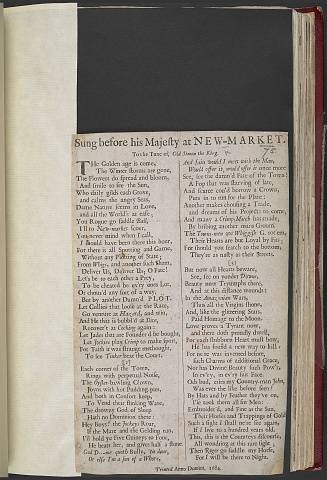 Sung before his Majesty at NEW-MARKET.
To the Tune of, Old Simon the King.
THe Golden age is come,
The Winter storms are gone,
The Flowers do spread and bloom,
And smile to see the Sun,
Who daily gilds each Grove,
and calms the angry Seas,
Dame Nature seems in Love,
and all the World's at ease,
You Rogue go saddle Ball,
I'll to New-market scour,
You never mind when I call,
I should have been there this hour,
For there is all Sporting and Game,
Without any Plotting of State;
From Whigs, and another such Sham,
Deliver Us, Deliver Us, O Fate!
Let's be to each other a Prey,
To be cheated be ev'ry ones Lot,
Or chous'd any sort of a way,
But by another Damn'd PLOT.
Let Cullies that lose at the Race,
Go venture at Hazard, and win,
And He that is bubbl'd at Dice,
Recover't at Cocking again:
Let Jades that are Founder'd be bought,
Let Jockies play Crimp to make sport,
For Faith it was strange methought,
To see Tinker beat the Court.
Each corner of the Town,
Rings with perpetual Noise,
The Oyster-bawling Clown,
Joyns with hot Pudding-pies,
And both in Consort keep,
To Vend their stinking Ware,
The drowzy God of Sleep
Hath no Dominion there:
Hey Boys! the Jockeys Roar,
If the Mare and the Gelding run,
I'll hold ye five Guineys to Four,
He beats her, and gives half a stone
quoth Bully, 'tis done,
Or else I'm a Son of a Whore,
And fain would I meet with the Man,
Would offer it, would offer it once more
See, see the damn'd Fate of the Town!
A Fop that was starving of late,
And scarce cou'd borrow a Crown,
Puts in to run for the Plate;
Another makes chousing a Trade,
and dreams of his Projects to come,
And many a Crimp-Match has made,
By bribing another mans Groom.
The Towns-men are Whiggish G. rot em,
Their Hearts are but Loyal by Fits;
For should you search to the bottom,
They're as nasty as their Streets.
But now all Hearts beware,
See, see on yonder Downs,
Beauty now Triumphs there,
And at this distance wounds:
In the Amazonian Wars,
Thus all the Virgins shone,
And, like the glittering Stars,
Paid Homage to the Moon.
Love proves a Tyrant now,
and there doth proudly dwell,
For each stubborn Heart must bow,
He has found a new way to kill:
For ne're was invented before,
such Charms of additional Grace,
Nor has Divine Beauty such Pow'r,
In ev'ry, in ev'ry fair Face.
Ods bud, cries my Country-man John,
Was ever the like before seen?
By Hats and by Feather they've on,
I'se took them all for Men:
Embroider'd, and Fine as the Sun,
Their Horses and Trappings of Gold
Such a sight I shall ne're see again,
if I live to a hundred years old.
This, this is the Countreys discourse,
All wondring at this rare sight;
Then Roger go saddle my Horse,
For I will be there to night.
Printed Anno Domini, 1684.